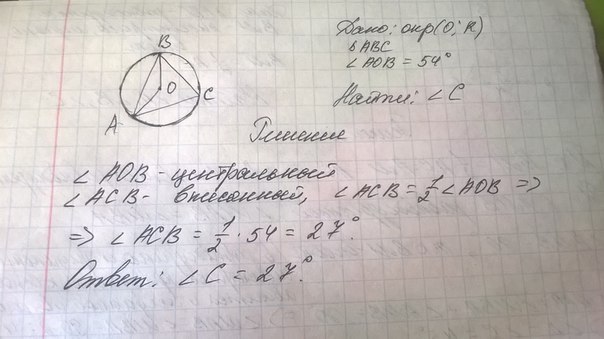 Дано: окр(О; R)
ΔABC
∠AOB = 54°
Найти: ∠C
B
O
C
A
Решение
∠AOB - центральный
∠ACB - вписанный, ∠ACB = 1/2 ∠AOB =>
=> ∠ACB = 1/2 · 54 = 27°.
Ответ: ∠C = 27°.